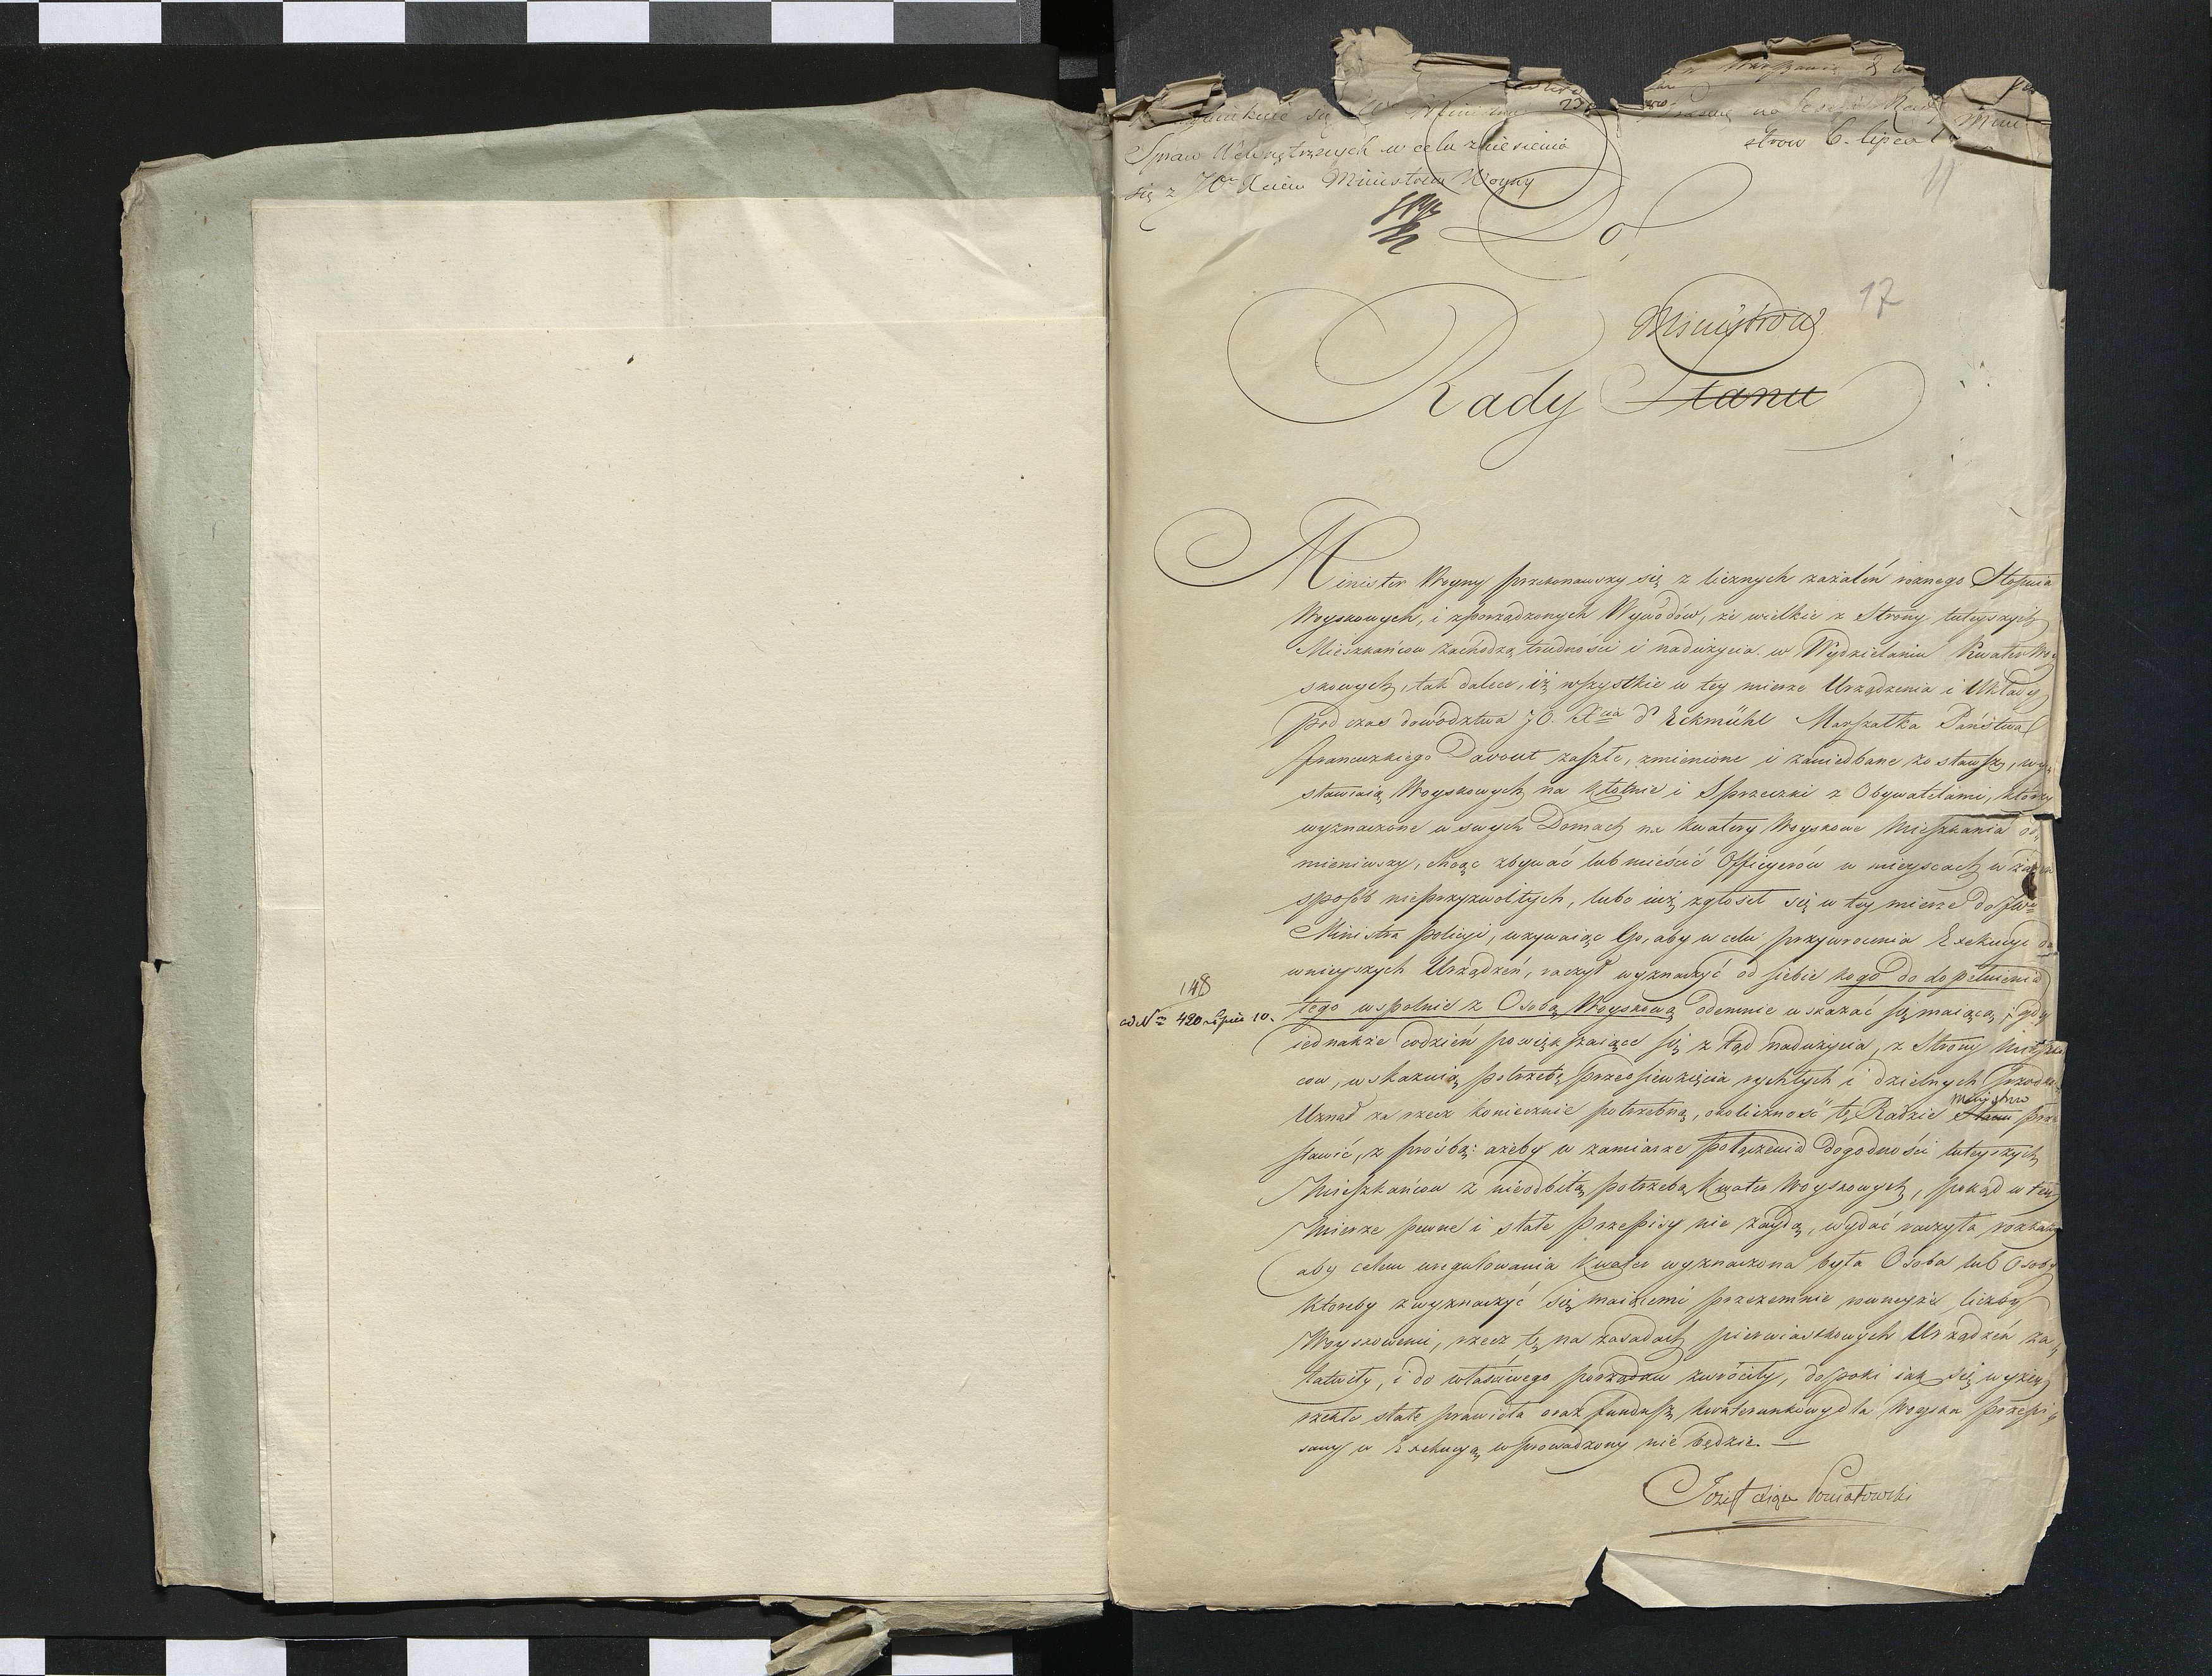 w Warszawie
Spraw Wewnętrznych w celu zniesienia
się z JO Xciem Ministrem Woyny
na Sessyi Rady Mini
strow 6. lipca
11
Do,
17
Ministrów
Rady Stanu
Minister Woyny przekonawszy się z licznych zażaleń roznego Stopnia
Woyskowych, i zporządzonych Wywodów, że wielkie z Strony tuteyszych
Mieszkańcow zachodzą trudności i nadużycia w Wydzielaniu Kwater Woy
skowych, tak dalece, iż wszystkie w tey mierze Urządzenia i Układy
pod czas dowództwa JO. Xcia d'Eckmühl Marszałka Państwa
francuzkiego Davout zaszłe, zmienione i zaniedbane zostawszy, wy
stawiaią Woyskowych na kłotnie i Sprzeczki z Obywatelami, którzy
wyznaczone w swych Domach na kwatery Woyskowe Mieszkania od
mieniwszy, chcąc zbywać lub mieścić Officyerów w mieyscach w żaden
sposób nieprzyzwoitych, lubo iuż zgłosił się w tey mierze do JW
Ministra Policyi, wzywaiąc Go, aby w celu przywrocenia Exekucyi da
wnieyszych Urządzeń, raczył wyznaczyć od siebie kogo do dopełnienia
148
ad No 420 Lipca 10.
tego wspolnie z Osobą Woyskową odemnie wskazać się maiącą; gdy
iednakże codzień powiększaiące się z tąd nadużycia, z Strony Mieszkań
cow, wskazuią potrzebę przedsiewzięcia rychłych i dzielnych środków
Uznał za rzecz koniecznie potrzebną, okoliczność tę Radzie Stanu prze
Ministrow
stawić, z prośbą: ażeby w zamiarze połączenia dogodności tuteyszych
Mieszkańcow z nieodbitą potrzebą Kwater Woyskowych, pokąd w tey
mierze pewne i stałe przepisy nie zaydą, wydać raczyła rozkazy
aby celem uregulowania Kwater wyznaczona była Osoba lub Osoby
ktoreby z wyznaczyć się maiącemi przezemnie rowneyże liczby
Woyskowemi, rzecz tę na zasadach pierwiastkowych Urządzeń za
łatwiły, i do właściwego porządku zwróciły, dopoki iak się wyżey
rzekło stałe prawidła oraz fundusz kwaterunkowy dla Woyska przepi
sany w Exekucyą wprowadzony nie będzie. —
Józef Xiąże Poniatowski